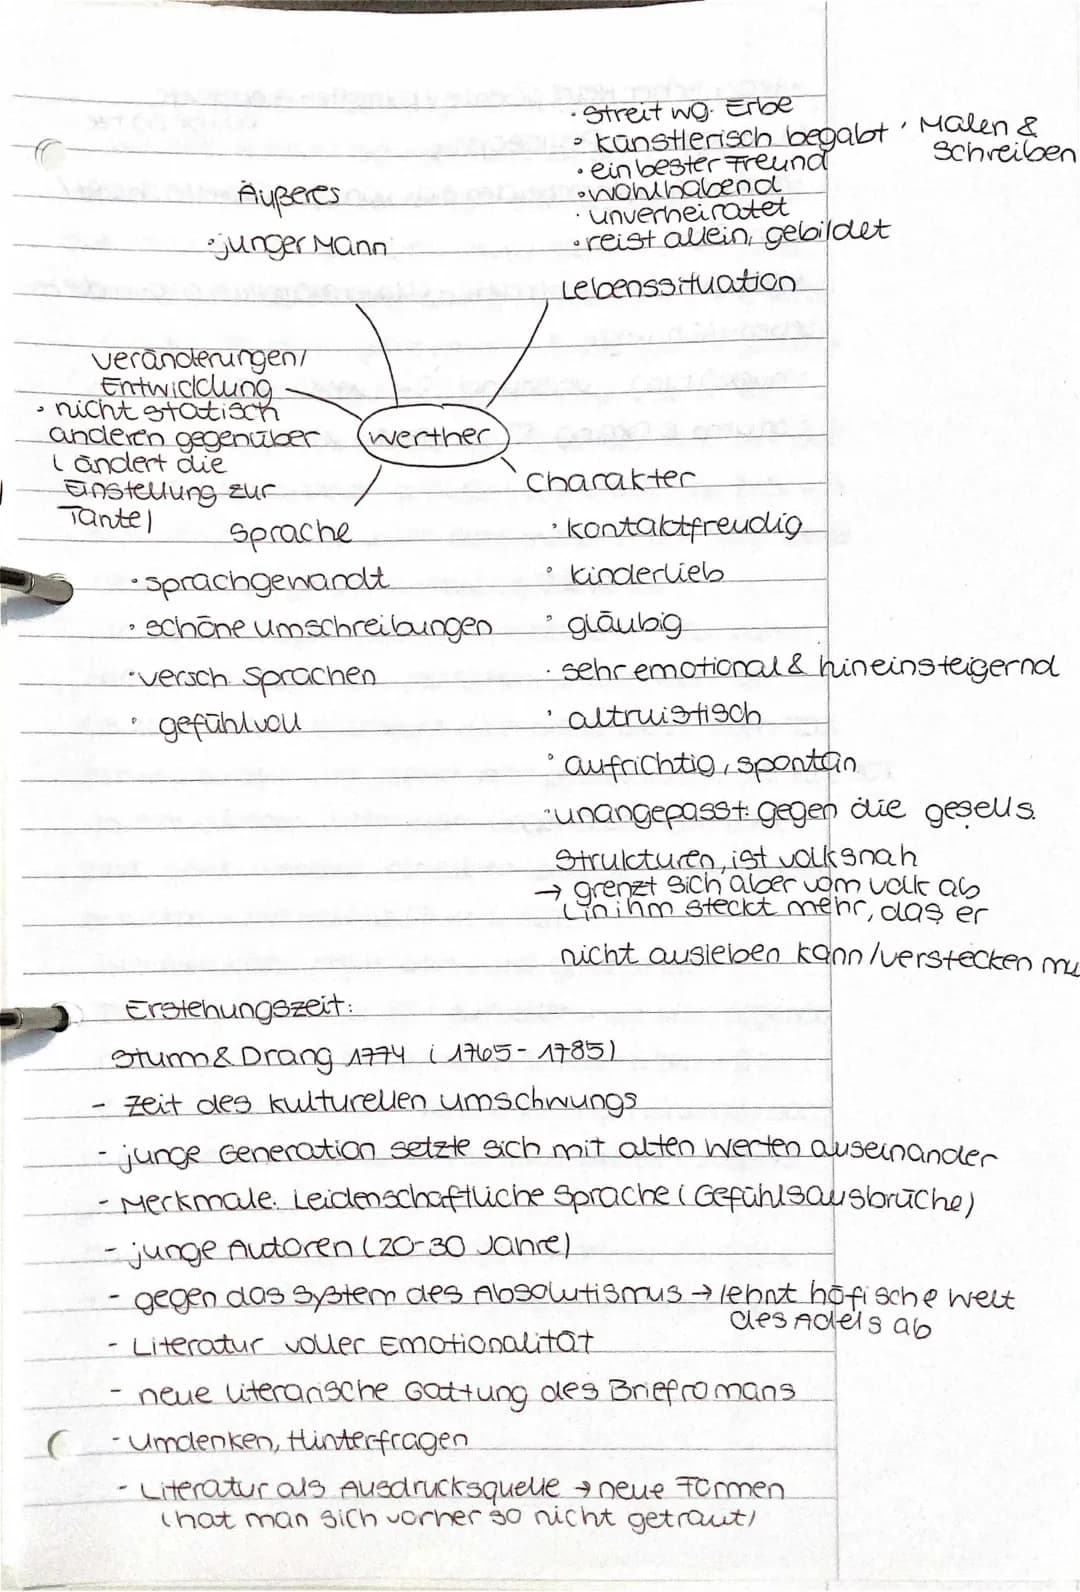 · Streit wg. Erbe
· künstlerisch begabt · Malen &
Schreiben
· ein bester Freund
· wohlhabend
· unverheiratet
· reist allein, gebildet
Lebenssituation
Äußeres
· junger Mann
Veränderungen/
Entwicklung
· nicht statisch
anderen gegenüber
( ändert die
Einstellung zur
Tante)
Werther
Sprache
· sprachgewandt
· schöne Umschreibungen
· versch. Sprachen
· gefühlvoll
Charakter
· kontaktfreudig
· kinderlieb
· gläubig
· sehr emotional & hineinsteigernd
· altruistisch
· aufrichtig, spontan
· unangepasst: gegen die gesells.
Strukturen, ist volksnah
→ grenzt sich aber vom Volk ab
↳ in ihm steckt mehr, das er
nicht ausleben kann / verstecken mu
Erstehungszeit:
Sturm & Drang 1774 (1765-1785)
- Zeit des kulturellen Umschwungs
- junge Generation setzte sich mit alten Werten auseinander
- Merkmale: Leidenschaftliche Sprache (Gefühlsausbrüche)
- junge Autoren (20-30 Jahre)
- gegen das System des Absolutismus → lehnt höfische Welt
des Adels ab
- Literatur voller Emotionalität
- neue literarische Gattung des Briefromans
- Umdenken, Hinterfragen
- Literatur als Ausdrucksquelle → neue Formen
(hat man sich vorher so nicht getraut)